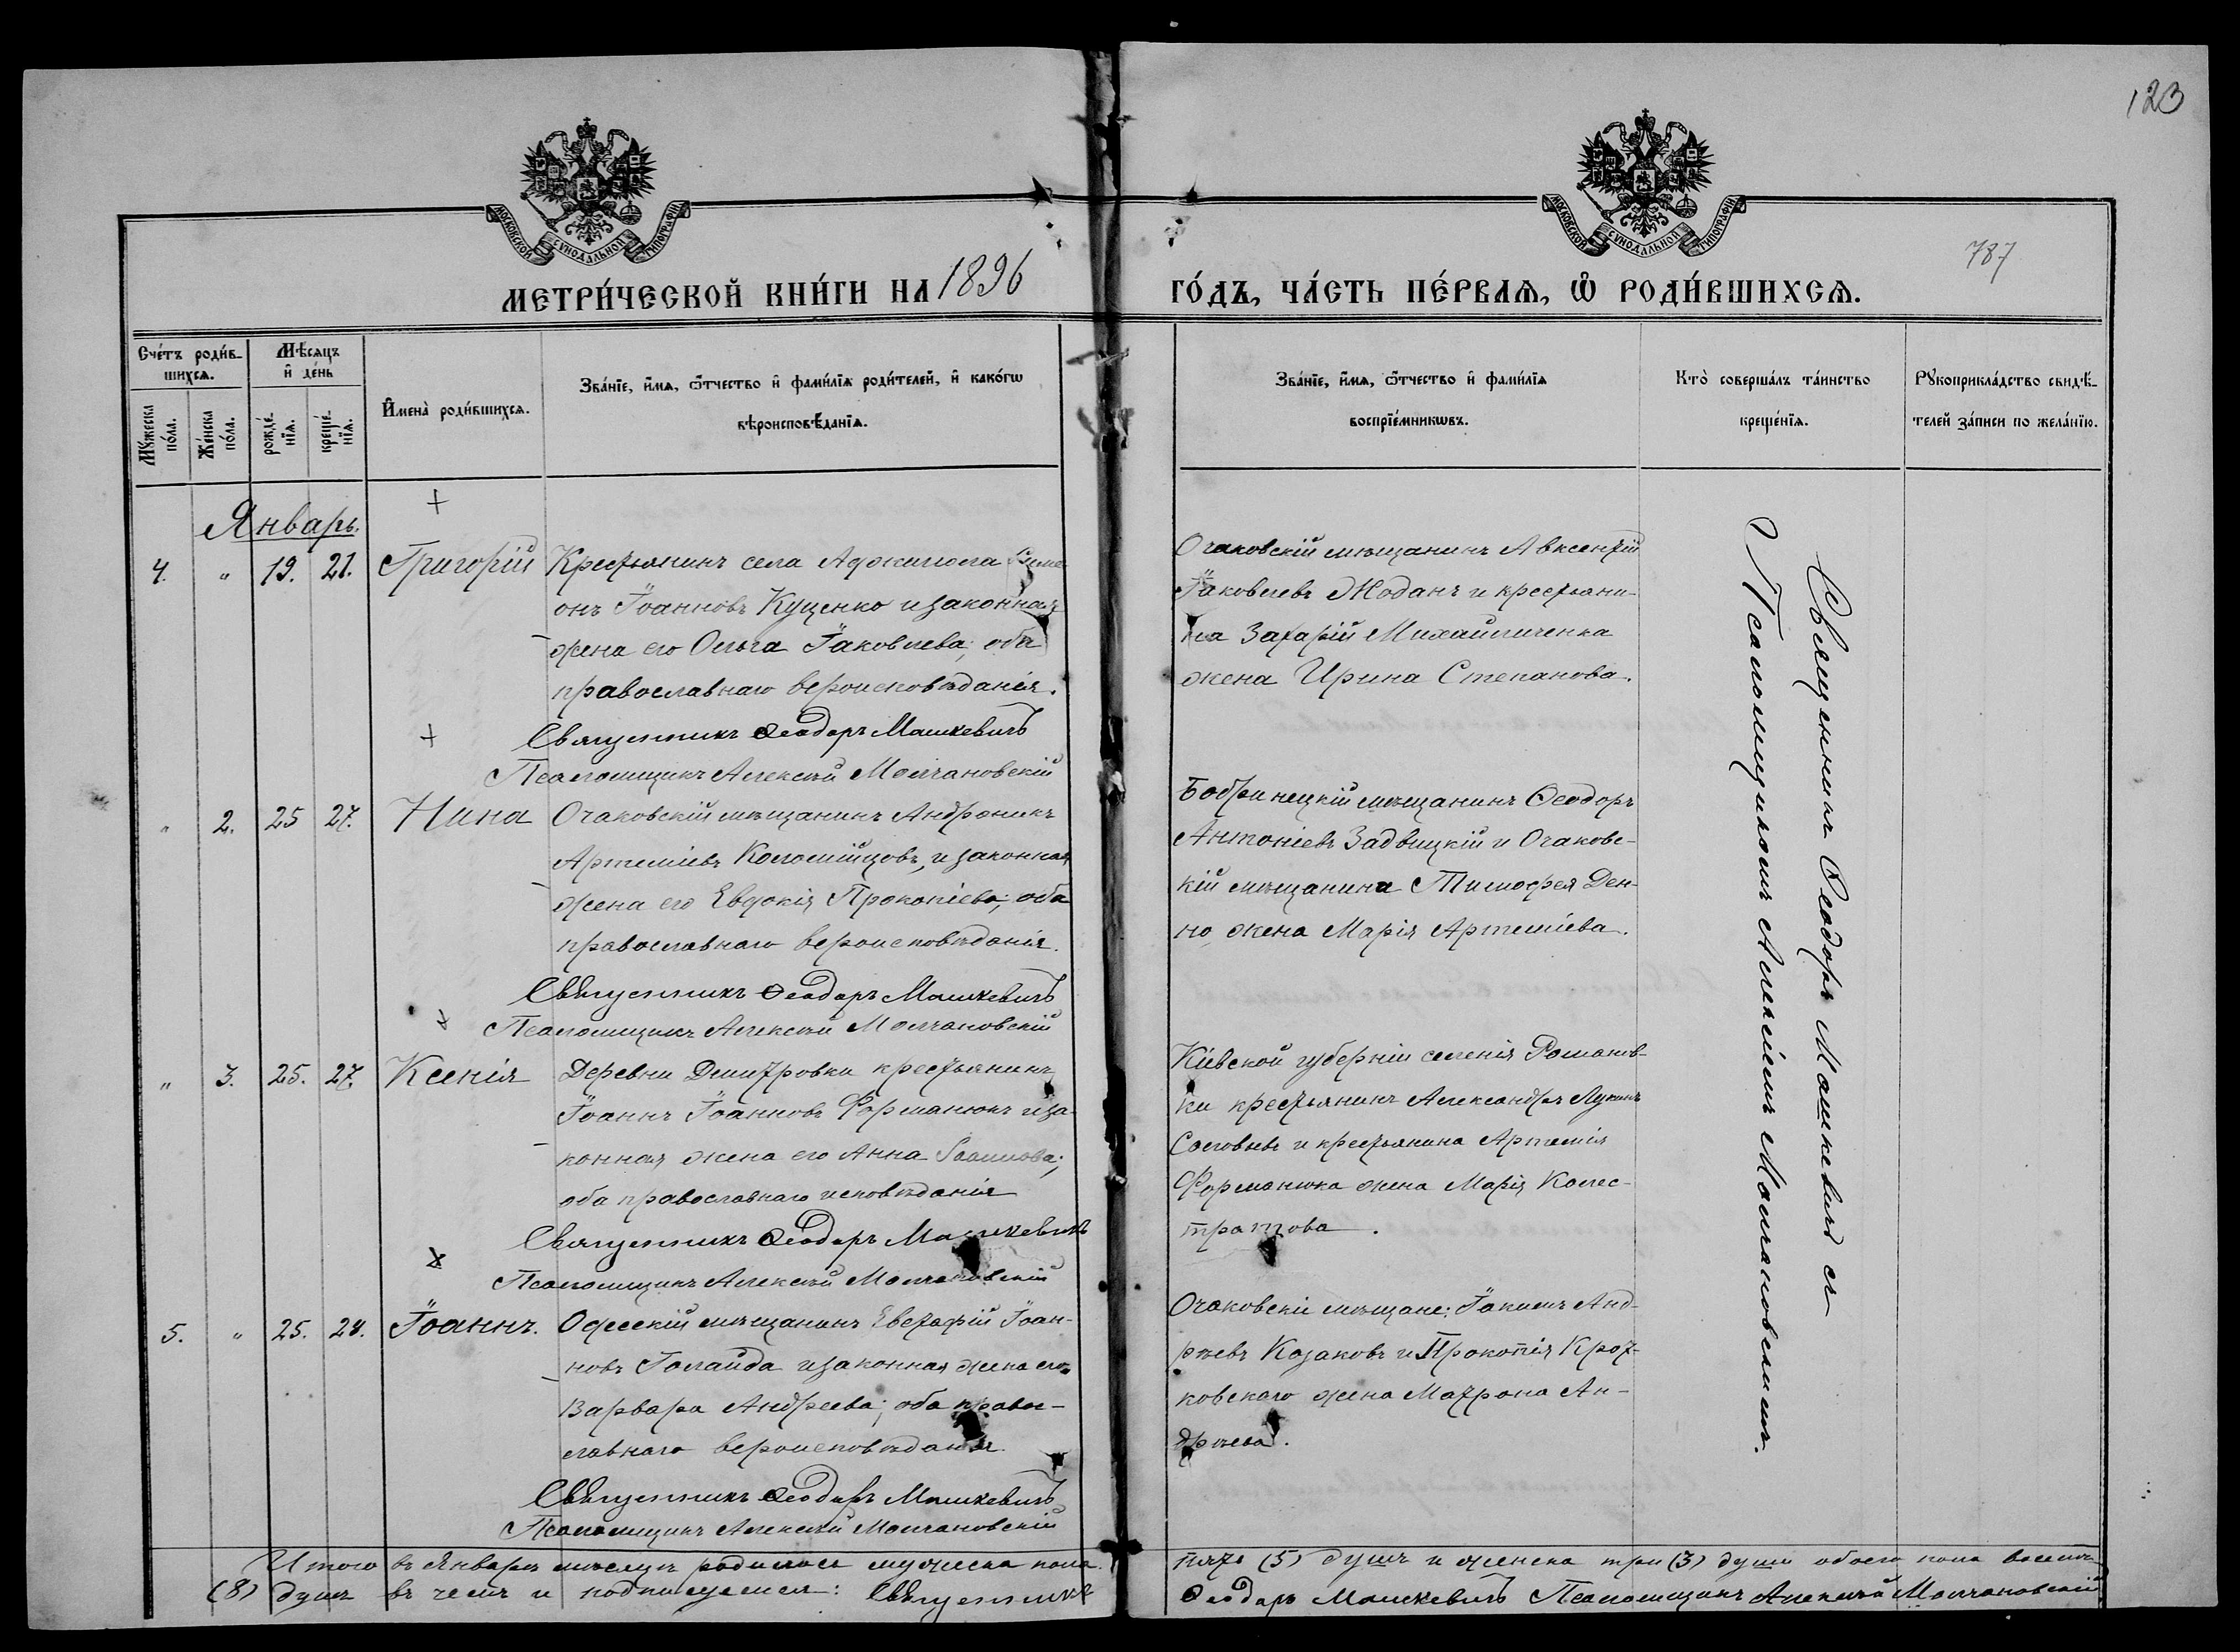 123
МОСКОВСКОЙ СѴНОДАЛЬНОЙ ТИПОГРАФІИ
МОСКОВСКОЙ СѴНОДАЛЬНОЙ ТИПОГРАФІИ
787
МЕТРИ́ЧЕСКОЙ КНИ́ГИ НА 1896
ГО́ДЪ, ЧА́СТЬ ПЕ́РВАѦ, Ѡ҆ РОДИ́ВШИХСѦ.
Сче́тъ роди́в-
шихсѧ.
Мѣ́сѧцъ
и҆ де́нь
Мꙋ́жеска
по́ла.
Же́нска
по́ла.
рожде́-
нїѧ.
креще́-
нїѧ.
И҆мена̀ роди́вшихсѧ.
Зва́нїе, и҆́мѧ, ѻ҆́тчество и҆ фами́лїѧ роди́телей, и҆ како́гѡ
вѣроисповѣ́данїѧ.
Зва́нїе, и҆́мѧ, ѻ҆́тчество и҆ фами́лїѧ
воспрїе́мникѡвъ.
Кто̀ соверша́лъ та́инство
креще́нїѧ.
Рꙋкоприкла́дство свидѣ́-
телей за́писи по жела́нїю.
Январь.
4. " 19. 21. Григорій Крестьянинъ села Аджигола Симе
онъ Іоанновъ Куценко и законная
жена его Ольга Іаковлева; оба
православнаго вероисповѣданія.
Священникъ Ѳеодоръ Машкевичъ
Псаломщикъ Алексѣй Молчановскій
Очаковскій мѣщанинъ Авксентій
Іаковлевъ Жоданъ и крестьяни-
на Захарій Михайличенка
жена Ирина Степанова.
" 2. 25 27. Нина Очаковскій мѣщанинъ Андроникъ
Артеміевъ Коломійцовъ, и законная
жена его Евдокія Прокопіева; оба
православнаго вероисповѣданія.
Священникъ Ѳеодоръ Машкевичъ
Псаломщикъ Алексѣй Молчановскій
Бобринецкій мѣщанинъ Ѳеодоръ
Антоніевъ Задвицкій и Очаковс-
кій мѣщанина Тимофея Ден-
но жена Марія Артеміева.
" 3. 25. 27. Ксенія Деревни Дмитровки крестьянинъ
Іоаннъ Іоанновъ Форманюкъ и за-
конная жена его Анна
оба православнаго исповѣданія
Священникъ Ѳеодоръ Машкевичъ
Псаломщикъ Алексѣй Молчановскій
Кіевской губерніи селенія Романов-
ки крестьянинъ Александръ Лукинъ
Соловьевъ и крестьянина Артемія
Форманюка жена Марія Калис-
тратова.
5. " 25. 28. Іоаннъ. Одесскій мѣщанинъ Евстафій Іоан-
новъ Голайда и законная жена его
Варвара Андреева; оба правос-
лавнаго вероисповѣданія
Священникъ Ѳеодоръ Машкевичъ
Псаломщикъ Алексѣй Молчановскій
Очаковскіе мѣщане: Іакимъ Анд-
рѣевъ Козаковъ и Прокопія Крот-
ковскаго жена Матрона Ан-
дрѣева.
Священникъ Ѳеодоръ Машкевичъ съ
Псаломщикомъ Алексѣемъ Молчановскимъ.
Итого въ Январѣ мѣсяцѣ родилось мужеска пола пять (5) душъ и женска три (3) души обоего пола восемь
(8) душъ въ чемъ и подписуемся: Священникъ Ѳеодоръ Машкевичъ Псаломщикъ Алексѣй Молчановскій